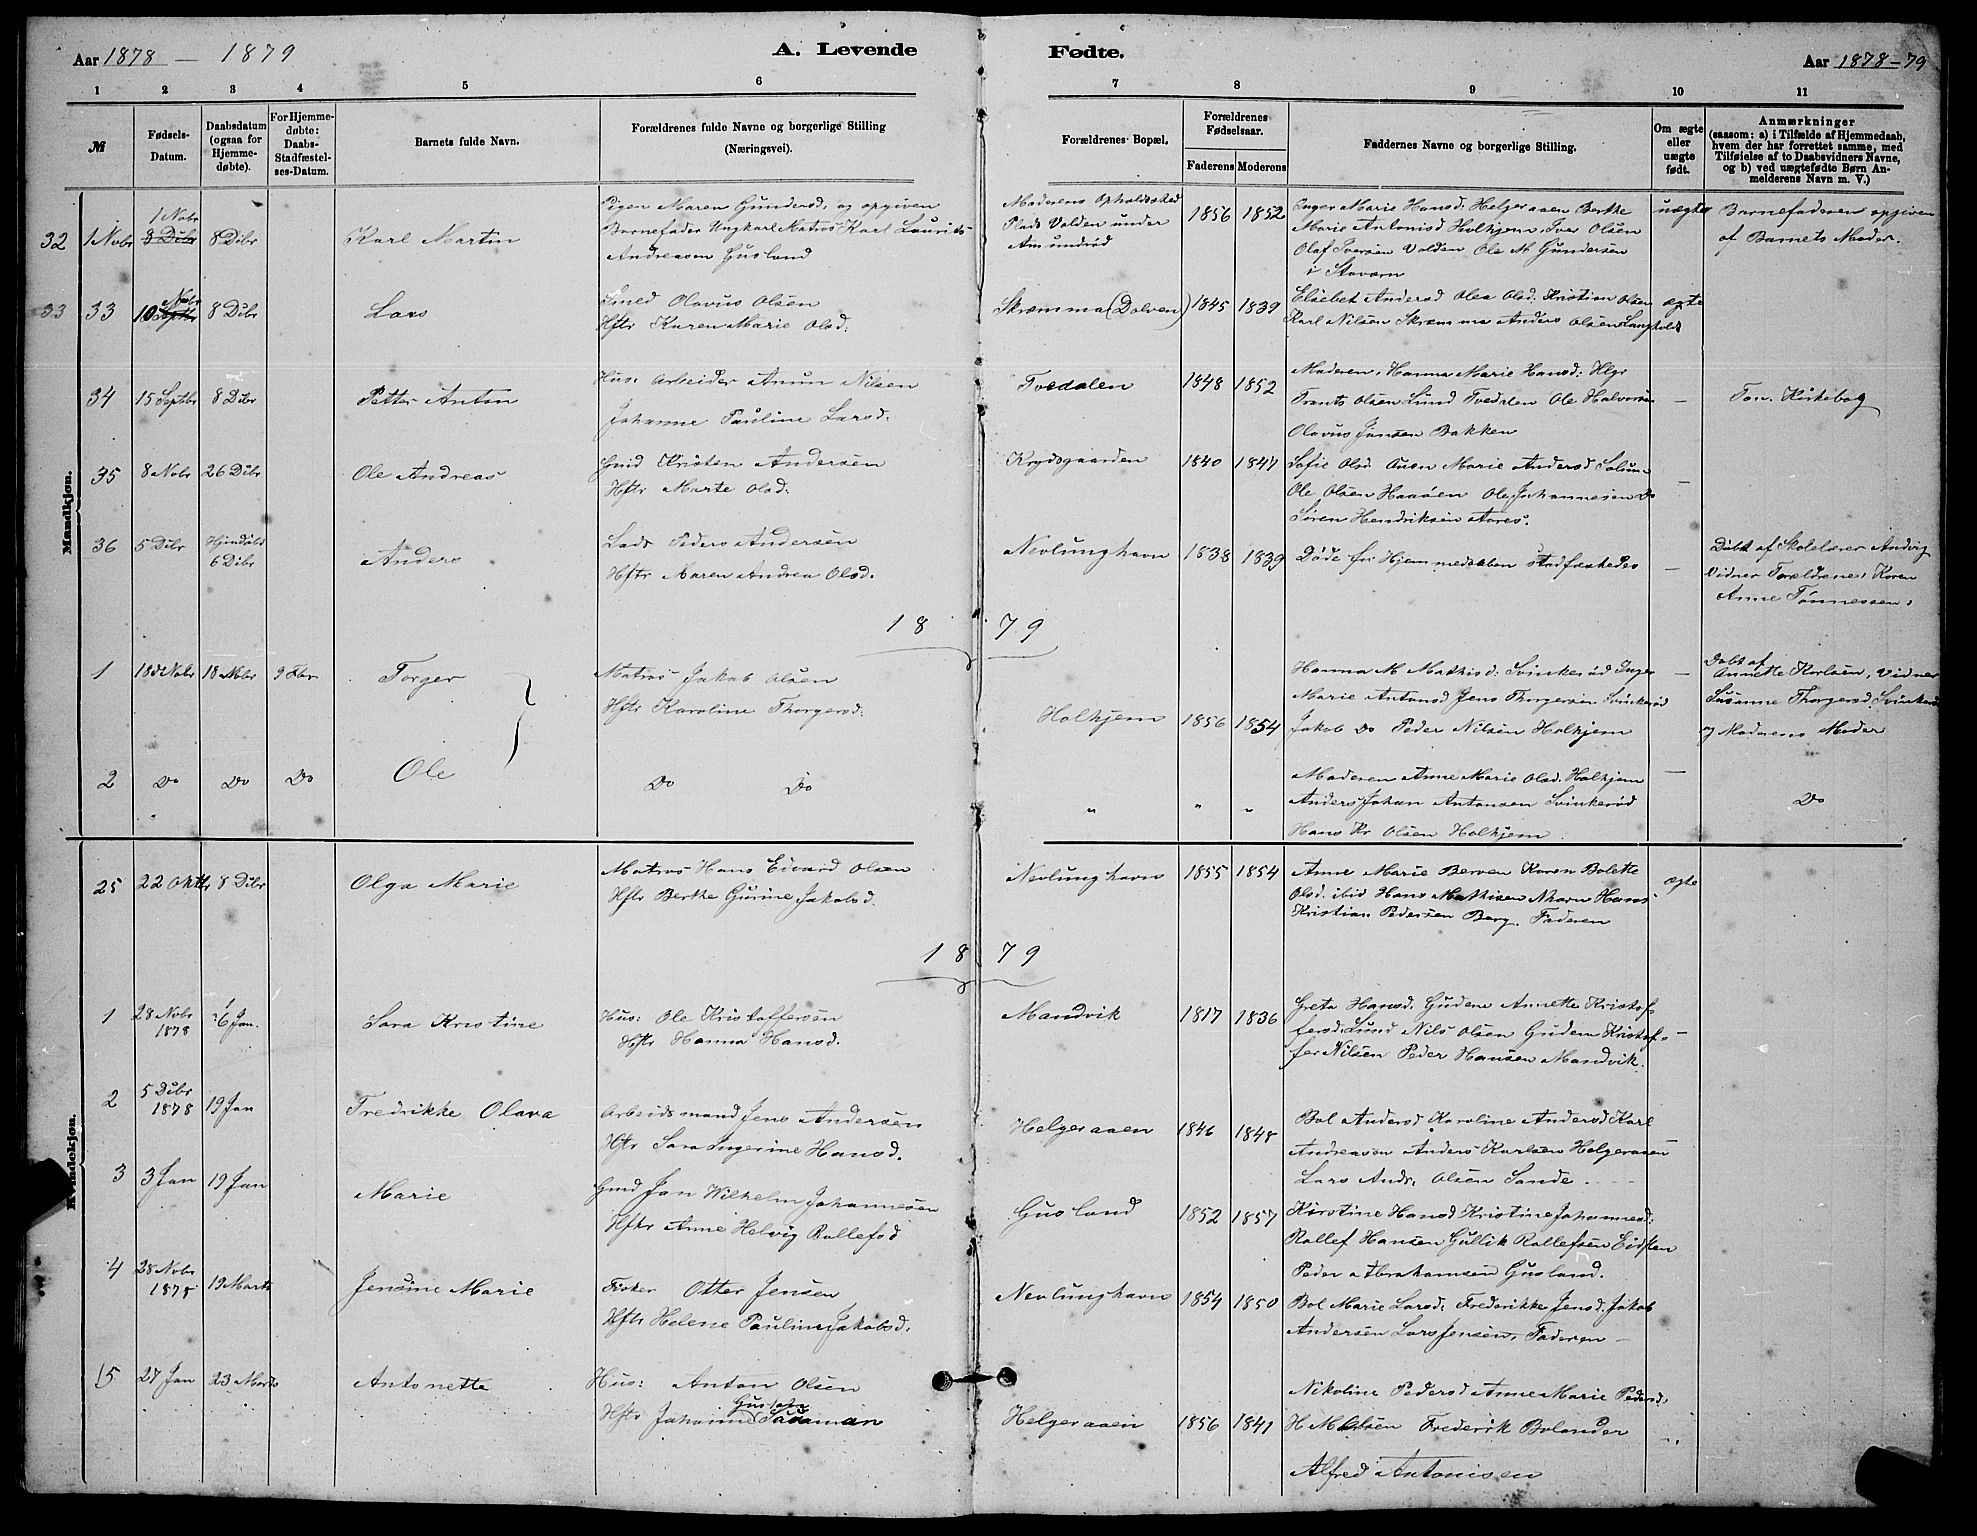 Aar 1878 – 1879
A. Levende
Fødte.
Aar 1878–79
1 2 3 4 5 6 7 8 9 10 11
№
Fødsels-
Datum.
Daabsdatum
(ogsaa for
Hjemme-
døbte).
For Hjemme-
døbte:
Daabs-
Stadfæstel-
ses-Datum.
Barnets fulde Navn.
Forældrenes fulde Navne og borgerlige Stilling
(Næringsvei).
Forældrenes Bopæl.
Forældrenes
Fødselsaar.
Faderens Moderens
Faddernes Navne og borgerlige Stilling.
Om ægte
eller
uægte
født.
Anmærkninger
(saasom: a) i Tilfælde af Hjemmedaab,
hvem der har forrettet samme, med
Tilføielse af to Daabsvidners Navne,
og b) ved uægtefødte Børn An-
melderens Navn m. V.)
Mandkjøn.
32 1 Nobr
1 Nobr
8 Dibr
8 Dibr
Karl Martin
Pigen Maren Gundersd, og opgiven
Barnefader Ungkarl Matros Karl Laurits
Andreasen Gusland
Moderens Opholdssted
Plads Volden under
Amundrød
1856 1852
Inger Marie Hansd. Helgeraaen Berthe
Marie Antonisd Holhjem, Iver Olsen
Olaf Iversen Volden Ole M Gundersen
i Stavern
uægte
Barnefaderen opgiven
af Barnets Moder.
33 33
Nobr
10 Septbr 8 Dibr
Lars
Smed Olavus Olsen
Hstr Karen Marie Olsd:
Skræmma (Dolven)
1845 1839
Elsebet Andersd Olea Olsd. Kristian Olsen
Karl Nilsen Skræmma Anders Olsen Langholt
ægte
34 15 Septbr 8 Dibr
Petter Anton
Hus: Arbeider Anun Nilsen
Johanne Pauline Larsd:
Tvedalen
1848 1852
Moderen, Hanna Marie Hansd: Hlgr
Frants Olsen Lund Tvedalen Ole Halvorsen
Olavus Jensen Bakken
–
Ton. Kirkebog
35 8 Nobr 26 Dibr
Ole Andreas
Gmd Kristen Andersen
Hstr Marte Olsd:
Krydsgaarden
1840 1847
Sofie Olsd Auen Marie Andersd Solum
Ole Olsen Haaøen Ole Johannesen Do
Søren Hendriksen Aares.
–
36 5 Dibr
Hjemdøbt
6 Dibr
Anders
Lods Peder Andersen
Hstr Maren Andrea Olsd.
Nevlunghavn
1838 1839
Døde før Hjemmedaaben stadfæstedes
–
Døbt af Skolelærer Andvig
Vidner Forældrene, Karen
Anne Tønnessen.
18 79
1 18de Nobr 18 Nobr 9 Fbr
Torger
Matros Jakob Olsen
Hstr Karoline Thorgersd:
Holhjem
1856 1854
Hanna M Mathisd: Svinkerød Inger
Marie Antonsd Jens Thorgersen Svinkerød
Jakob Do Peder Nilsen Holhjem
–
Døbt af
Annette Karlsen, Vidner
Susanne Thorgersd. Svinkerød
og Moderens Moder
2 Do Do Do
Ole
Do Do
" " "
Moderen Anne Marie Olsd. Holhjem
Anders Johan Antonsen Svinkerød
Hans Kr Olsen Holhjem
–
Do
Kvindekjøn.
25 22 Oktbr 8 Dibr
Olga Marie
Matros Hans Edvard Olsen
Hstr Berthe Gurine Jakobsd.
Nevlunghavn
1855 1854
Anne Marie Berven Karen Bolette
Olsd. ibid Hans Mathisen Nhavn Hans
Kristian Pedersen Berg. Faderen
ægte
18 79
1 28 Nobr
1878
6 Jan.
Sara Kristine
Hus: Ole Kristoffersen
Hstr Hanna Hansd.
Mandvik
1817 1836
Greta Hansd. Gudem Annette Kristof-
fersd. Lund Nils Olsen Gudem Kristof-
fer Nilsen Peder Hansen Mandvik.
–
2 5 Dibr
1878
19 Jan
Fredrikke Olava
Arbeidsmand Jens Andersen
Hstr Sara Ingerine Hansd.
Helgeraaen
1846 1848
Bol Andersd Karoline Andersd Karl
Andreasen Anders Karlsen Helgeraaen
Lars Andr: Olsen Sande.
3 3 Jan 19 Jan
Marie
Gmd Jan Wilhelm Johannesen
Hstr Anne Helvig Rollefsd
Gusland
1852 1857
Kirstine Hansd Kristine Johannesd:
Rollef Hansen Gullik Rollefsen Eidsten
Peder Abrahamsen Gusland.
4 28 Nobr
1878
19 Marts
Jensine Marie
Fisker Otter Jensen
Hstr Helene Pauline Jakobsd.
Nevlunghavn
1854 1850
Bol Marie Larsd: Frederikke Jensd. Jakob
Andersen Lars Jensen, Faderen –
5 27 Jan 23 Marts
Antonette
Hus: Anton Olsen
Hstr Johanne
Helgeraaen
1856 1841
Nikoline Pedersd Anne Marie Pedersd,
H M Olsen Frederik Bolander
Alfred Antonisen
–